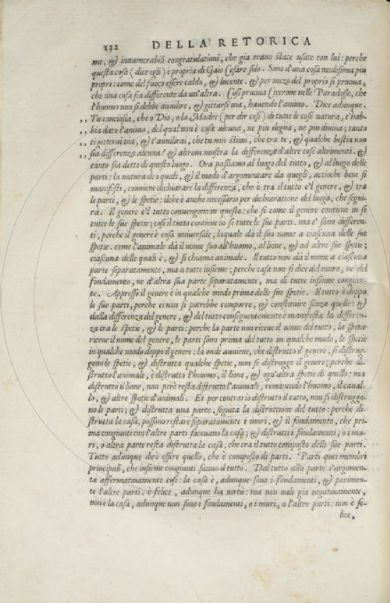 132 DELLA RETORICA
me, & innumerabili congratulationi, che gia erano state usate con lui: perche
questa cosa (dice egli) è propria di Gaio Cesare solo. Sono d'una cosa medesima piu
propri: come del fuoco essere caldo, & lucente. & per mezo del proprio si pruova,
che una cosa sia differente da un'altra. Cosi pruova Cicerone nelle Paradosse, che
l'huomo non si debbe auuilire, & gittarsi via, havendo l'animo. Dice adunque,
,, Tu conciosia, che o Dio, o la Madre (per dir cosi) di tutte le cose natura, t'hab-
,, bia dato l'animo, del qual non è cosa alcuna, ne piu degna, ne piu divina; tanto
,, ti getterai via, & t'auuilirai, che tu non istimi, che tra te, & qualche bestia non
,, sia differenza alcuna? & altrove mostra la differenza d'altre cose altrimenti. &
tanto sia detto di questo luogo. Ora passiamo al luogo del tutto, & al luogo delle
parti: la natura de i quali, & il modo d'argomentare da quegli, accioche ben si
manifesti, conviene dichiarare la differenza, che è tra il tutto e'l genere, & tra
le parti, & le spetie: ilche è anche necessario per dichiaratione del luogo, che segui-
rà. Il genere e'l tutto convengono in questo: che si come il genere contiene in se
tutte le sue spetie; cosi il tutto contiene in se tutte le sue parti. ma e' sono differen-
ti, perche il genere è cosa universale, laquale dà il suo nome a ciascuna delle sue
spetie. come l'animale dà il nome suo all'huomo, al lione, & ad altre sue spetie;
ciascuna delle quali è, & si chiama animale. Il tutto non dà il nome a ciascuna
parte separatamente, ma a tutte insieme; perche casa non si dice del muro, ne del
fondamento, ne d'altra sua parte separatamente, ma di tutte insieme congiun-
te. Appresso il genere è in qualche modo prima delle sue spetie. Il tutto è dopo
le sue parti, perche ei non si potrebbe comporre, & constituire senza quelle: &
dalla differenza del genere, & del tutto conseguentemente è manifesta la differen-
za tra le spetie, & le parti: perche la parte non riceve il nome del tutto, la spetie
riceve il nome del genere, le parti sono prima del tutto in qualche modo, le spetie
in qualche modo dopo il genere: la onde auuiene, che distrutto il genere, si distrug-
gono le spetie, & distrutta qualche spetie, non si distrugge il genere; perche di-
strutto l'animale, è distrutto l'huomo, il lione, & ogn'altra spetie di quello: ma
distrutto il lione, non però resta distrutto l'animale, rimanendo l'huomo, il caval-
lo, & altre spetie d'animali. Et per contrario distrutto il tutto, non si distruggo-
no le parti; & distrutta una parte, seguita la distruttione del tutto: perche di-
strutta la casa, possono restare separatamente i muri, & il fondamento, che pri-
ma congiunti con l'altre parti facevano la casa; & distrutti i fondamenti, o i mu-
ri, o altra parte resta distrutta la casa, che era il tutto composto delle sue parti.
Tutto adunque dirò essere quello, che è composto di parti. Parti quei membri
principali, che insieme congiunti fanno il tutto. Dal tutto alla parte s'argomen-
ta affermativamente cosi: la casa è, adunque sono i fondamenti, & parimen-
te l'altre parti. è felice, adunque ha virtù: ma non vale gia negativamente,
non è la casa, adunque non sono i fondamenti, o i muri, o l'altre parti: non è fe-
lice,